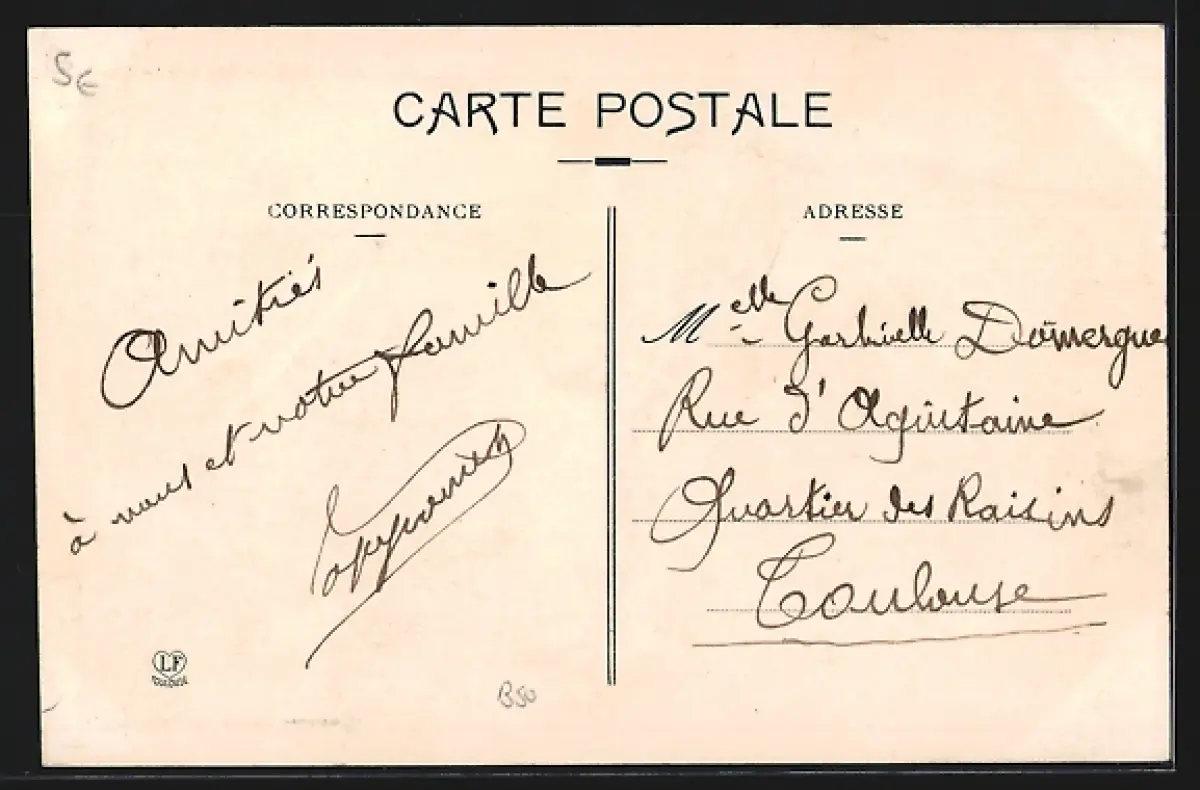 5€
CARTE POSTALE
CORRESPONDANCE
Amitiés
à vous et votre famille
ADRESSE
Melle Gabrielle Domergue
Rue d'Aquitaine
Quartier des Raisins
Toulouse
LF
TOULOUSE
B50